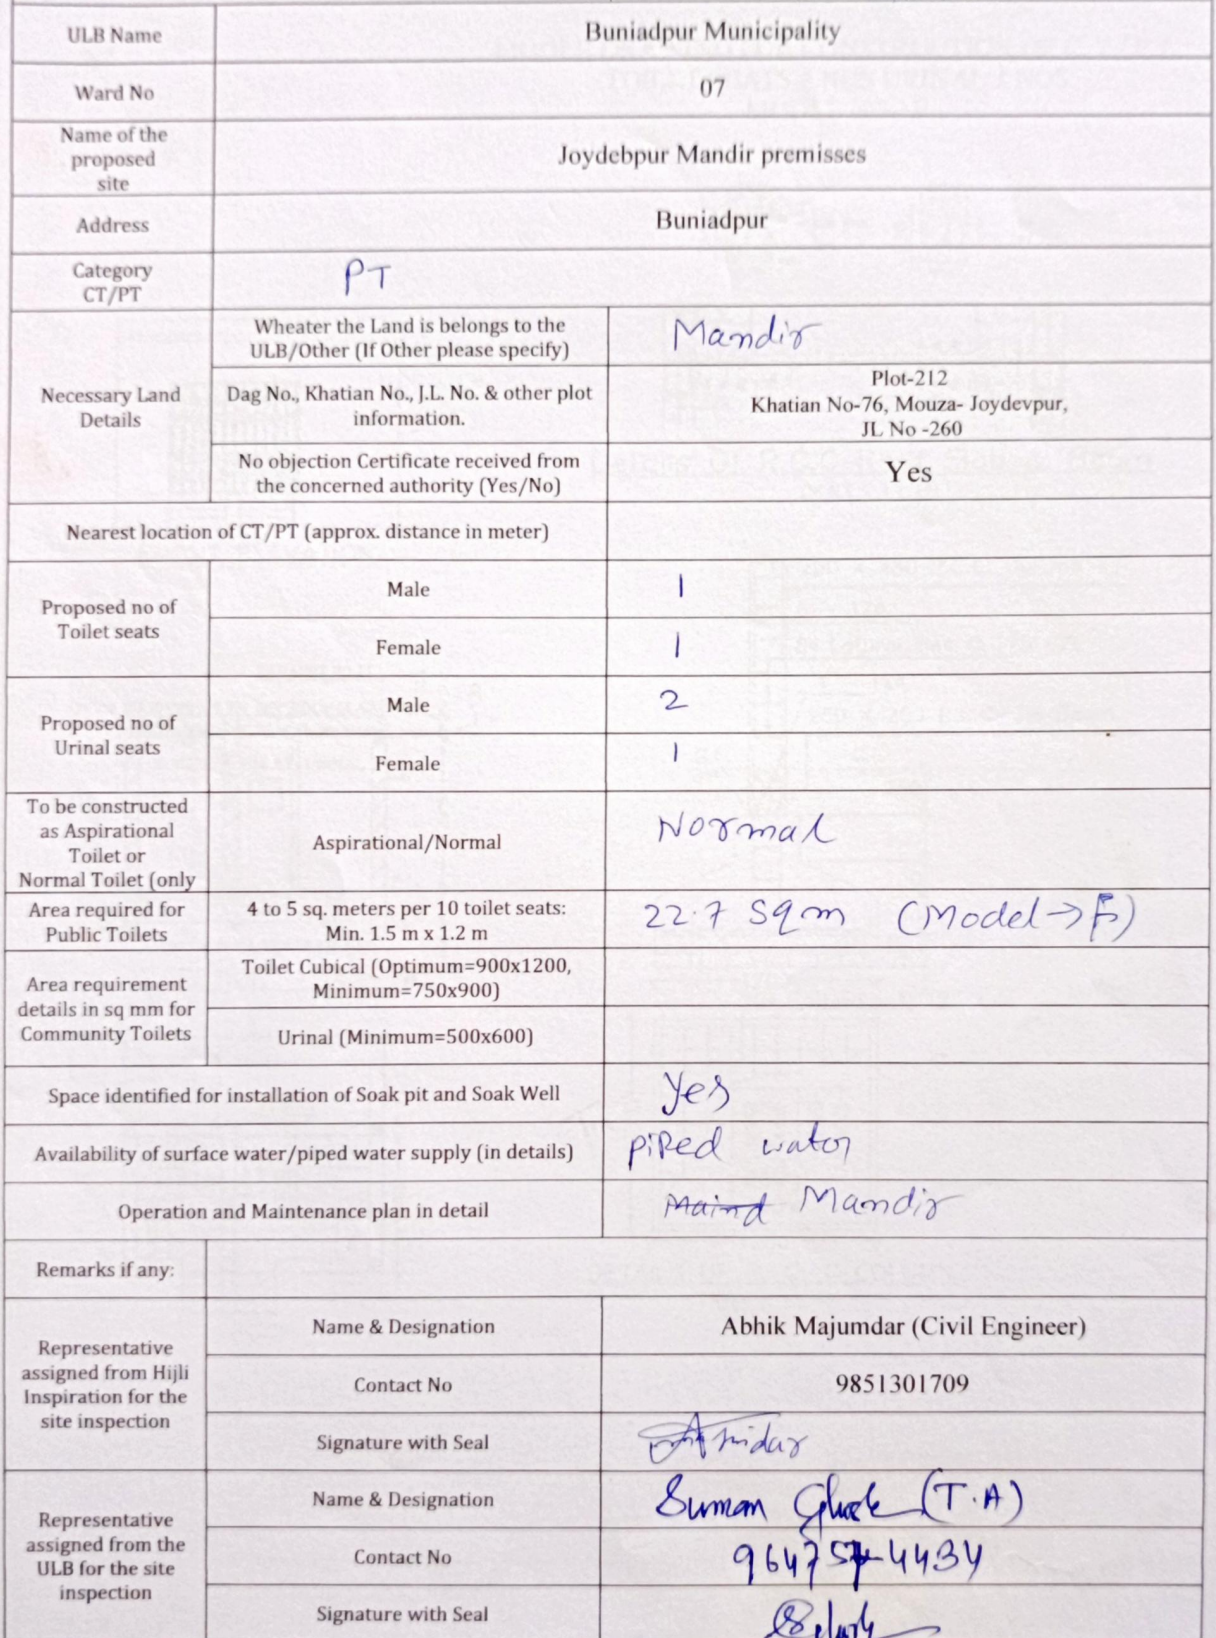 ULB Name
Buniadpur Municipality
Ward No
07
Name of the
proposed
site
Joydebpur Mandir premisses
Address
Buniadpur
Category
CT/PT
PT
Necessary Land
Details
Wheater the Land is belongs to the
ULB/Other (If Other please specify)
Mandir
Dag No., Khatian No., J.L. No. & other plot
information.
Plot-212
Khatian No-76, Mouza- Joydevpur,
JL No -260
No objection Certificate received from
the concerned authority (Yes/No)
Yes
Nearest location of CT/PT (approx. distance in meter)
Proposed no of
Toilet seats
Male
1
Female
1
Proposed no of
Urinal seats
Male
2
Female
1
To be constructed
as Aspirational
Toilet or
Normal Toilet (only
Aspirational/Normal
Normal
Area required for
Public Toilets
4 to 5 sq. meters per 10 toilet seats:
Min. 1.5 m x 1.2 m
22.7 Sqm (Model→F)
Area requirement
details in sq mm for
Community Toilets
Toilet Cubical (Optimum=900x1200,
Minimum=750x900)
Urinal (Minimum=500x600)
Space identified for installation of Soak pit and Soak Well
Yes
Availability of surface water/piped water supply (in details)
piped water
Operation and Maintenance plan in detail
Mandir
Remarks if any:
Representative
assigned from Hijli
Inspiration for the
site inspection
Name & Designation
Abhik Majumdar (Civil Engineer)
Contact No
9851301709
Signature with Seal
Representative
assigned from the
ULB for the site
inspection
Name & Designation
Suman Ghosh (T.A)
Contact No
Signature with Seal